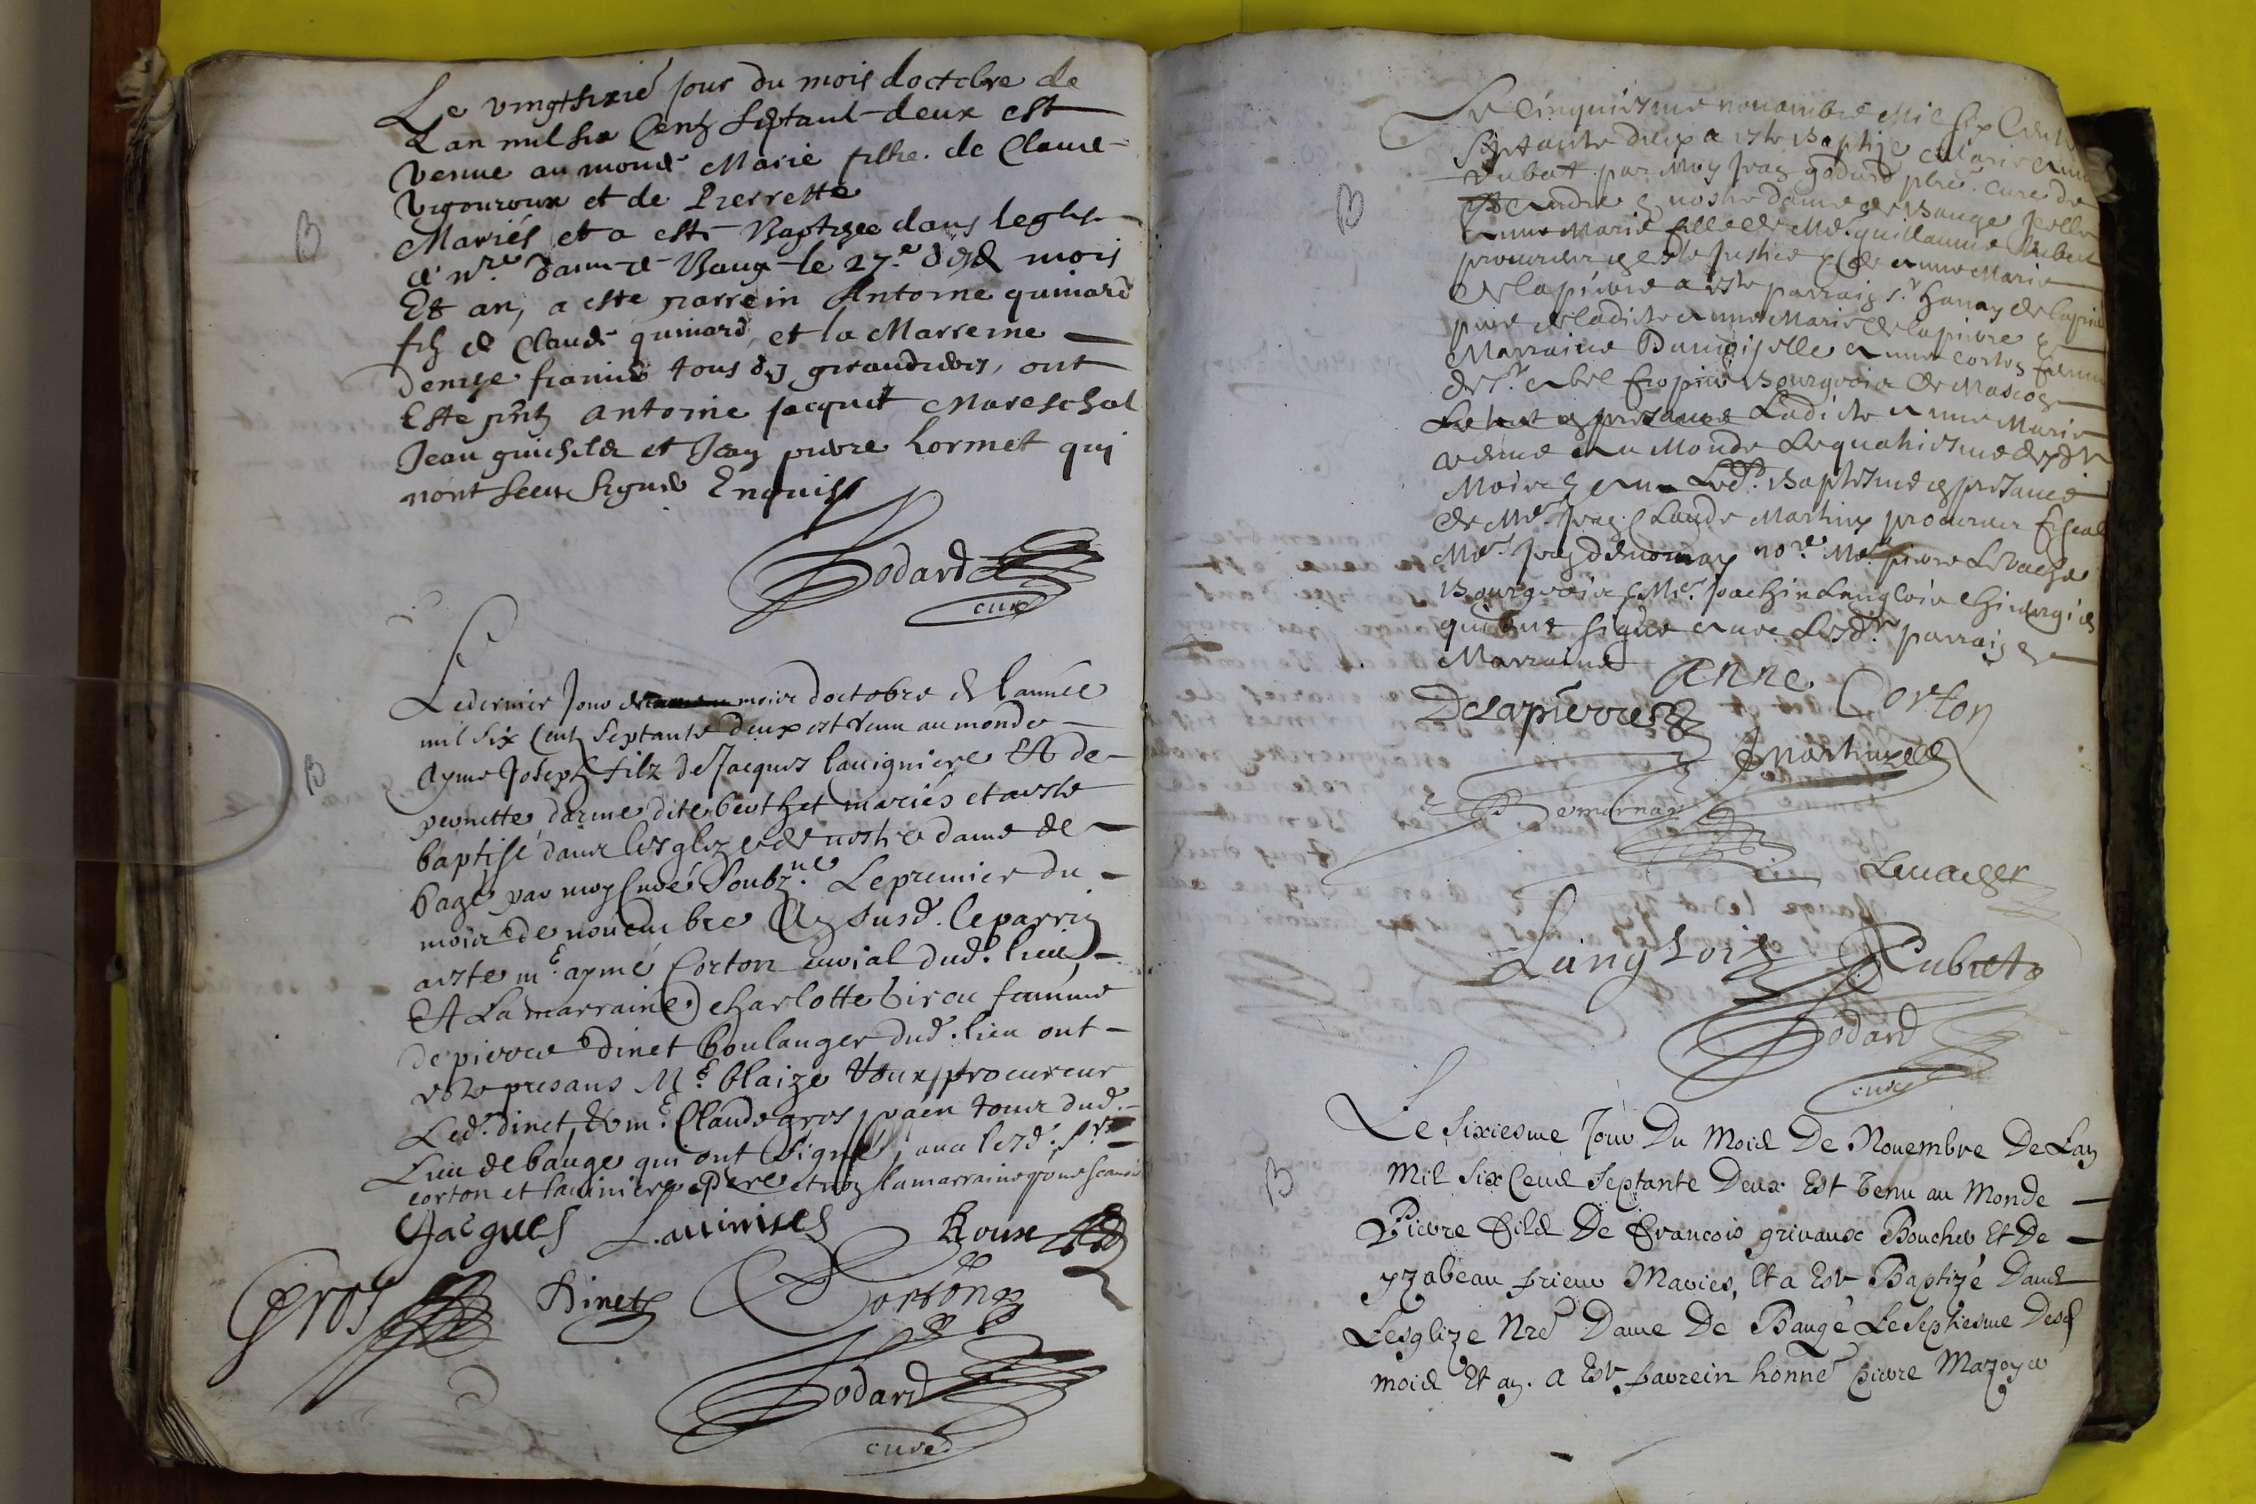 B
Le vingtsixie jour du mois doctobre de
Lan mil six Centz Septant-deux est
venue au monde Marie fille de Claude
Vigouroux et de Pierrette
Mariés et a esté Baptizée dans leglise
de nre dame de Bauge le 27e desd mois
Et an, a este parrein Antoine guinard
filz de Claude guinard et la Marreine
Denise tous de ont
Este pntz antoine jacquet Mareschal
Jean guichelet et Jean pierre Lormet qui
nont sceu signer Enquis
Godard
curé
B
Le dernier Jour de mois doctobre de lannée
mil six Centz septante deux est venu au monde
Ayme Joseph filz de Jacques lauigniere Et de
pernette darme dite berthet mariés et a este
baptisé dans lesglize de nostre dame de
bagé par moy Curé Soubzne. Le premier du
mois de nouembre An susd. le parrin
a este me. aymé Corton dud. lieu
Et La marraine charlotte femme
de pierre dinet boulanger dud. lieu ont
este presans Me. blaize Roux procureur
Led. dinet, Et me. Claude gros tous dud.
Lieu de bauge qui ont signé, auec lesd. srs
corton et lauiniere pere et non la marraine pour ne scauoir
Jacques Lauinires Roux
Gros Dinet Corton
Godard
curé
B
Le Cinquiesme nouambre Mil six Cent
Septante deux a este Baptize Marie
Rubat par Moy Jean godard pbre. Curé de
nostre dame de Bauge fille
Anne Marie fille de Me. guillaume Rubat
procureur en de Anne Marie
Delapierre a este parrain Sr. de lapierre
pere de ladicte Anne Marie Delapierre &
Marraine Damoiselle Anne Corton femme
de Sr. Abel Bourgeois de Mascon
Ladicte Anne Marie
venue au Monde Le quatriesme desd
Mois & an Led. Baptesme en presance
de Me. Jean Claude Martin procureur fiscal
Me. Jean demornay nore. Me. pierre Leuacher
Bourgeois & Me. Joachin Langlois Chirurgien
qui ont signe auec Lesd. parrain &
Marraine
Anne Corton
Delapierre
Martin
Demornay
Leuacher
Langlois Rubat
Godard
curé
B
Le Sixiesme Jour Du Mois De Nouembre De Lan
Mil Six Cens Septante Deux Est Venu au Monde
Pierre Filz De Francois griuaux Boucher Et De
yzabeau prieur Mariés, Et a Este Baptizé Dans
Lesglize Nre Dame De Baugé Le Septiesme Desd
mois Et an. A Este parrein honne pierre Mazoyer